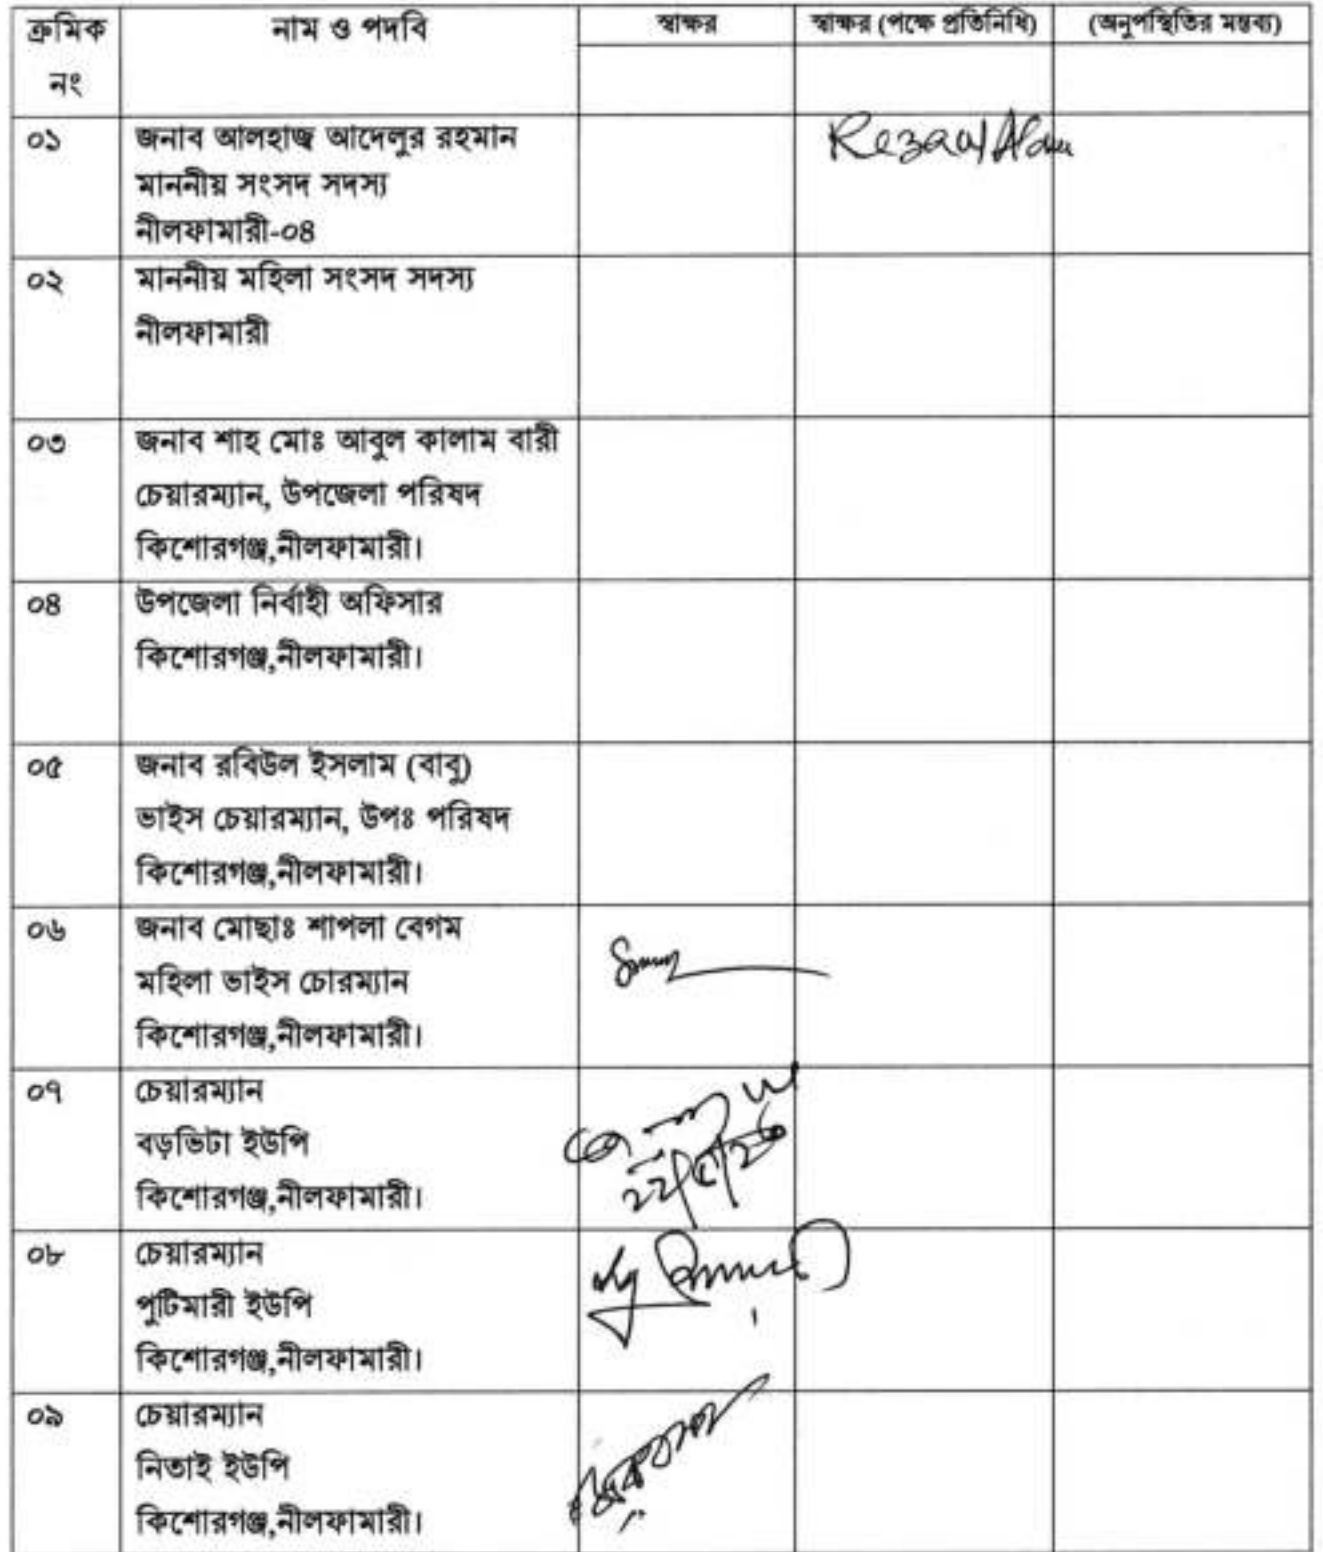 ক্রমিক নং নাম ও পদবি স্বাক্ষর স্বাক্ষর (পক্ষে প্রতিনিধি) (অনুপস্থিতির মন্তব্য)
০১ জনাব আলহাজ্ব আদেলুর রহমান Rezaul Alam
মাননীয় সংসদ সদস্য
নীলফামারী-০৪
০২ মাননীয় মহিলা সংসদ সদস্য
নীলফামারী
০৩ জনাব শাহ মোঃ আবুল কালাম বারী
চেয়ারম্যান, উপজেলা পরিষদ
কিশোরগঞ্জ,নীলফামারী।
০৪ উপজেলা নির্বাহী অফিসার
কিশোরগঞ্জ,নীলফামারী।
০৫ জনাব রবিউল ইসলাম (বাবু)
ভাইস চেয়ারম্যান, উপঃ পরিষদ
কিশোরগঞ্জ,নীলফামারী।
০৬ জনাব মোছাঃ শাপলা বেগম
মহিলা ভাইস চোরম্যান
কিশোরগঞ্জ,নীলফামারী।
০৭ চেয়ারম্যান
বড়ভিটা ইউপি
কিশোরগঞ্জ,নীলফামারী।
০৮ চেয়ারম্যান
পুটিমারী ইউপি
কিশোরগঞ্জ,নীলফামারী।
০৯ চেয়ারম্যান
নিতাই ইউপি
কিশোরগঞ্জ,নীলফামারী।